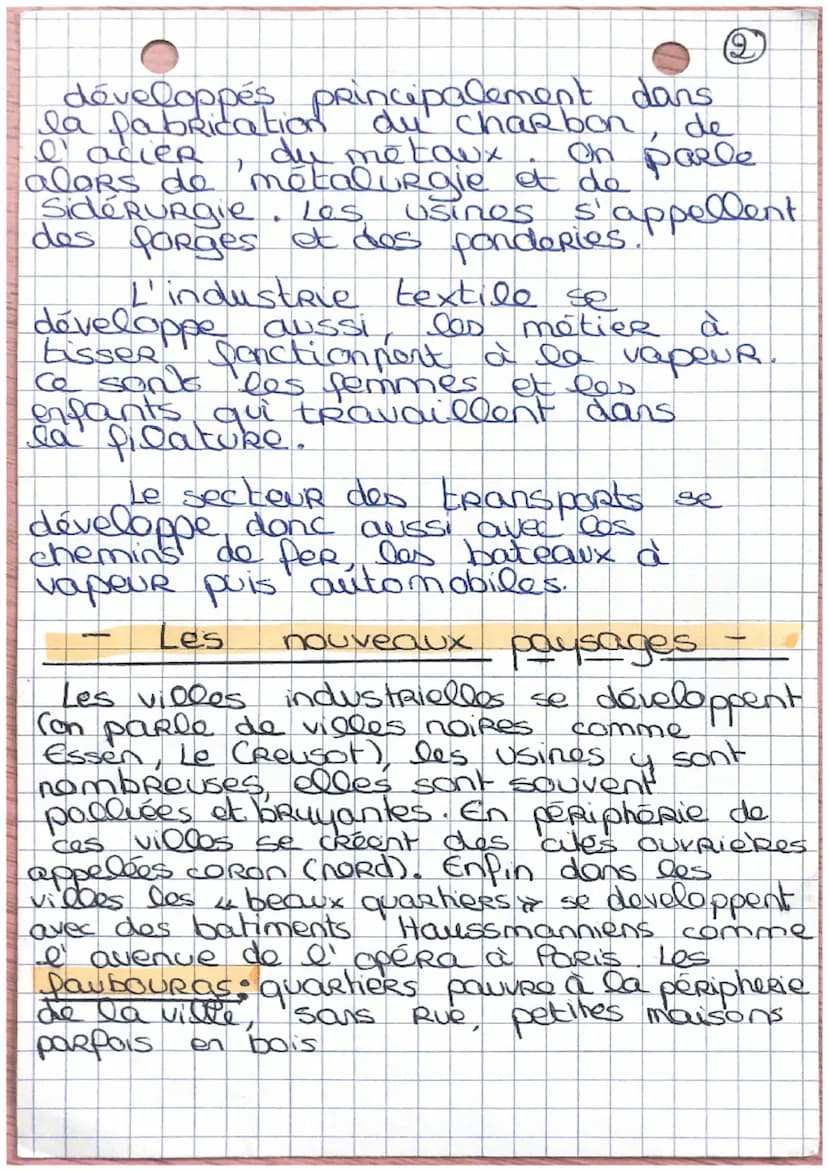 2
développés principalement dans
la fabrication du charbon, de
l'acier, du métaux. On parle
alors de métalurgie et de
sidérurgie. Les usines s'appellent
des forges et des fonderies.
L'industrie textile se
développe aussi, les métier à
tisser fonctionnent à la vapeur.
Ce sont les femmes et les
enfants qui travaillent dans
la filature.
Le secteur des transports se
développe donc aussi avec les
chemins de fer, les bateaux à
vapeur puis automobiles.
- Les nouveaux paysages -
Les villes industrielles se développent
(on parle de villes noires comme
Essen, Le Creusot), les usines y sont
nombreuses, elles sont souvent
polluées et bruyantes. En périphérie de
ces villes se créent des cités ouvrières
appelées coron (nord). Enfin dans les
villes les « beaux quartiers » se developpent
avec des batiments Haussmanniens comme
l'avenue de l'opéra à Paris. Les
faubouras : quartiers pauvre à la péripherie
de la ville, sans rue, petites maisons
parfois en bois